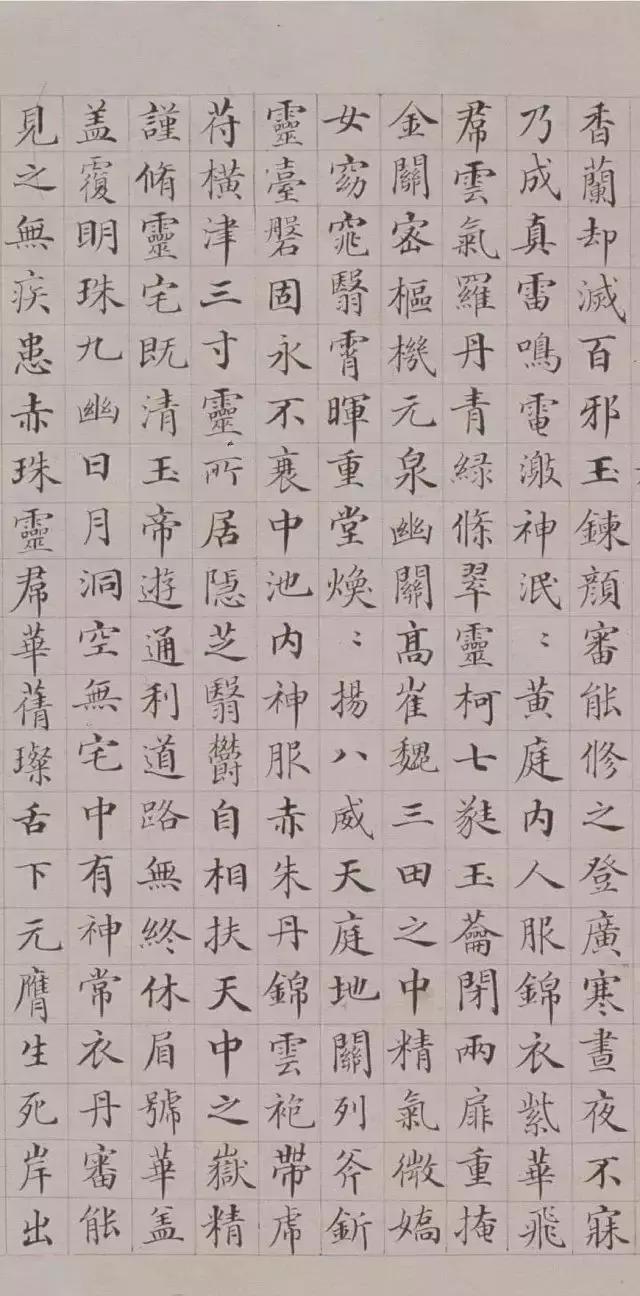 香蘭却滅百邪玉鍊顔審能修之登廣寒晝夜不寐
乃成真雷鳴電激神泯〻黄庭内人服錦衣紫華飛
帬雲氣羅丹青緑條翠靈柯七蕤玉蘥閉兩扉重掩
金關密樞機元泉幽關髙崔巍三田之中精氣微嬌
女窈窕翳霄暉重堂煥〻揚八威天庭地關列斧釿
靈臺磐固永不衰中池内神服赤朱丹錦雲袍帶虎
苻橫津三寸靈所居隱芝翳欝自相扶天中之嶽精
謹脩靈宅既清玉帝遊通利道路無終休眉號華盖
盖覆明珠九幽日月洞空無宅中有神常衣丹審能
見之無疾患赤珠靈帬華蒨璨舌下元膺生死岸出